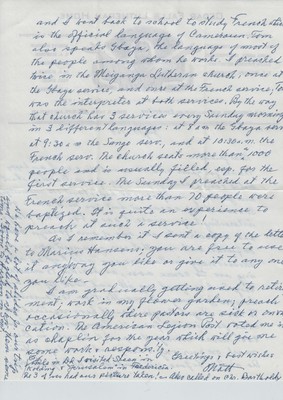 and I went back to school to study French, this
is the official language of Cameroun. Tom
also speaks Gbaya, the language of most of
the people among whom he works. I preached
twice in the Meiganga Lutheran church, once at
the Gbaya service, and once at the French service; Tom
was the interpreter at both services. By the way
that church has 3 services every Sunday morning
in 3 different languages: at 7 am the Gbaya serv
at 9:30 am the Sango serv., and at 10:30 a.m. the
French serv. The church seats more than 1,000
people and is usually filled, esp. for the
first service. The Sunday I preached at the
French service more than 70 people were
baptized. It is quite an experience to
preach at such a service!
As I remember it I sent a copy of the letter
to Marius Hansen; you are free to use
it anyway you like or give it to any one
you like.
I am gradually getting used to retire-
ment; work in my flower garden; preach
occasionally where pastors are sick or on va-
cation. The American Legion Post voted me in
as chaplin for the year which will give me
some work & responsibility.
While in DK I visited
Kolding & "Jerusalem" in Fredericia
Greetings & best wishes
We 3 had our picture taken. Also called on Chr. Bartholdy